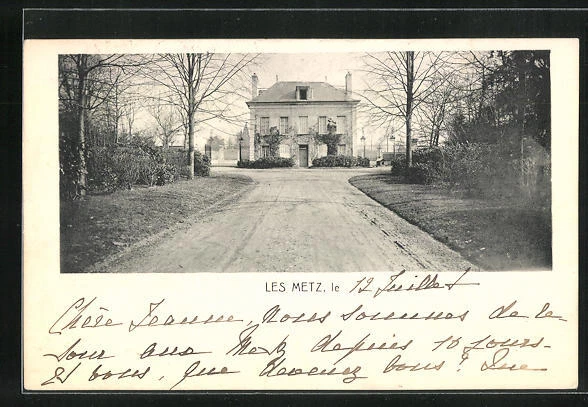 LES METZ, le 12 Juillet
Chère Jeanne, Nous sommes de re-
tour aux Metz depuis 10 jours-
Et vous, que devenez vous? Que